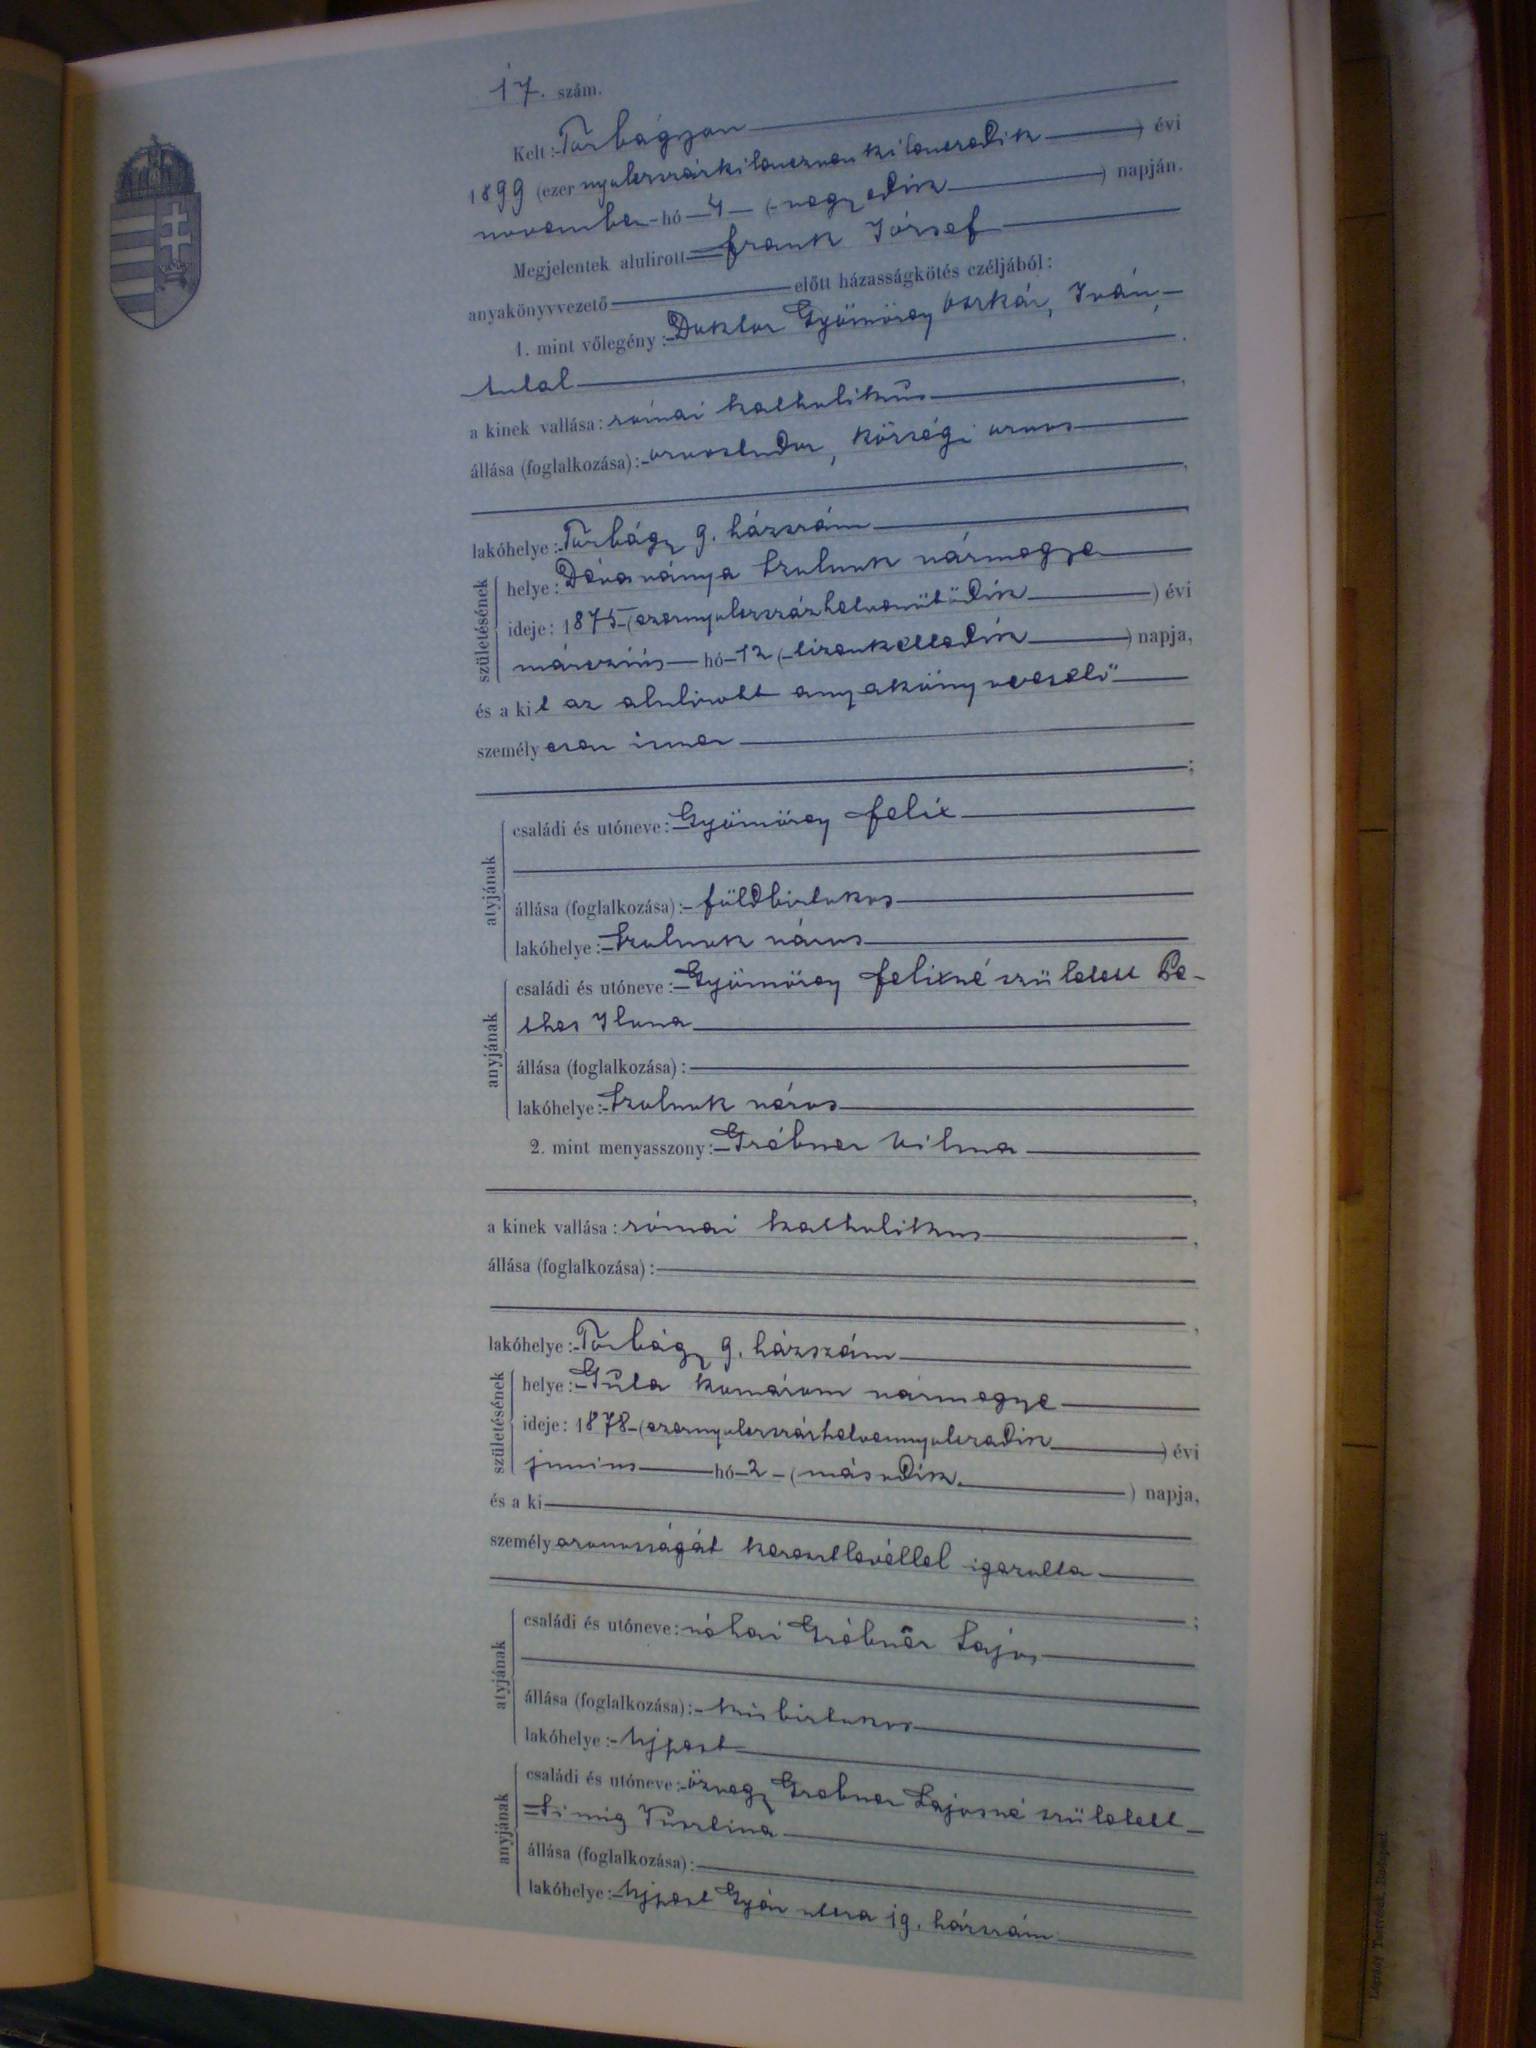 17. szám.
Kelt: Torbágyon
1899 (ezer nyolczszázkilenczvenkilenczedik) évi
november hó 4 (negyedik) napján.
Megjelentek alulirott Frank József
anyakönyvvezető előtt házasságkötés czéljából:
1. mint vőlegény: Doktor Gyömörey Oszkár, Iván,
Antal
a kinek vallása: római katholikus,
állása (foglalkozása): orvostudor, községi orvos
lakóhelye: Torbágy 9. házszám
születésének
helye: Dévaványa Szolnok vármegye
ideje: 1875 (ezernyolczszázhetvenötödik) évi
márczius hó 12 (tizenkettedik) napja,
és a kit az alulirott anyakönyvvezető
személyesen ismer ;
atyjának
családi és utóneve: Gyömörey Felix
állása (foglalkozása): földbirtokos
lakóhelye: Szolnok város
anyjának
családi és utóneve: Gyömörey Felixné született Be-
thes Ilona
állása (foglalkozása):
lakóhelye: Szolnok város
2. mint menyasszony: Grébner Vilma
a kinek vallása: római katholikus,
állása (foglalkozása):
lakóhelye: Torbágy 9. házszám
születésének
helye: Guta Komárom vármegye
ideje: 1878 (ezernyolczszázhetvennyolczadik) évi
junius hó 2 (második) napja,
és a ki
személyazonosságát keresztlevéllel igazolta ;
atyjának
családi és utóneve: néhai Grébner Lajos
állása (foglalkozása): kisbirtokos
lakóhelye: Ujpest
anyjának
családi és utóneve: özvegy Grebner Lajosné született
állása (foglalkozása):
lakóhelye: Ujpest Gyár utcza 19. házszám
Légrády Testvérek, Budapest